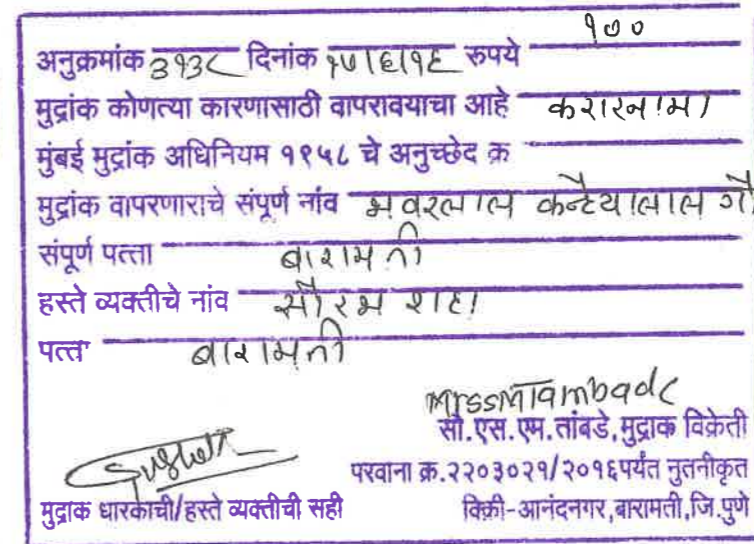 अनुक्रमांक ३१३८ दिनांक १७।६।१६ रुपये १००
मुद्रांक कोणत्या कारणासाठी वापरावयाचा आहे करारनामा
मुंबई मुद्रांक अधिनियम १९५८ चे अनुच्छेद क्र
मुद्रांक वापरणाराचे संपूर्ण नांव भवरलाल कन्हैयालाल
संपूर्ण पत्ता बारामती
हस्ते व्यक्तीचे नांव सौरभ शहा
पत्ता बारामती
सौ.एस.एम.तांबडे,मुद्राक विक्रेती
परवाना क्र.२२०३०२१/२०१६पर्यंत नुतनीकृत
मुद्राक धारकाची/हस्ते व्यक्तीची सही विक्री-आनंदनगर,बारामती,जि.पुणे